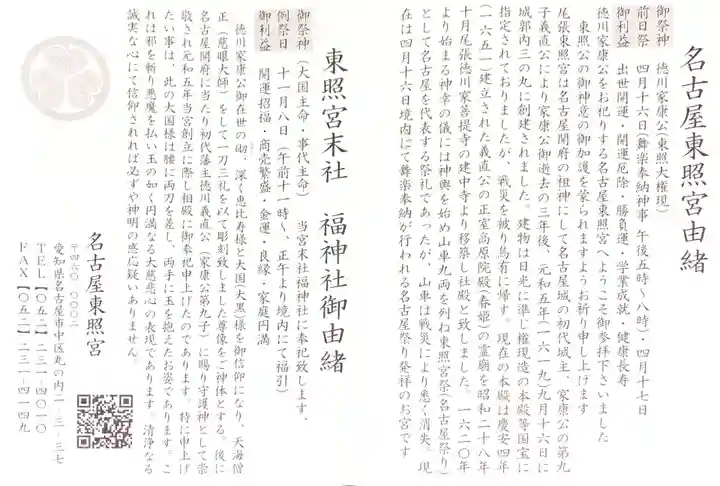 名古屋東照宮由緒
御祭神　徳川家康公(東照大権現)
前日祭　四月十六日(舞楽奉納神事 午後五時～八時)・四月十七日
御利益　出世開運・開運厄除・勝負運・学業成就・健康長寿
徳川家康公をお祀りする名古屋東照宮へようこそ御参拝下さいました
東照公の御神意の御加護を蒙られますようお祈り申し上げます
尾張東照宮は名古屋開府の祖神にして名古屋城の初代城主、家康公の第九
子義直公により家康公御逝去の三年後、元和五年(一六一九)九月十六日に
城郭内三の丸に創建されました。建物は日光に準じ権現造の本殿等国宝に
指定されておりましたが、戦災を被り烏有に帰す。現在の本殿は慶安四年
(一六五一)建立された義直公の正室高原院殿(春姫)の霊廟を昭和二十八年
十月尾張徳川家菩提寺の建中寺より移築し社殿と致しました。一六二〇年
より始まる神幸の儀には神輿を始め山車九両を列ね東照宮祭(名古屋祭り)
として名古屋を代表する祭礼であったが、山車は戦災により悉く消失。現
在は四月十六日境内にて舞楽奉納が行われる名古屋祭り発祥のお宮です
東照宮末社　福神社御由緒
御祭神　(大国主命・事代主命)　当宮末社福神社に奉祀致します、
例祭日　十一月八日(午前十一時～、正午より境内にて福引)
御利益　開運招福・商売繁盛・金運・良縁・家庭円満
徳川家康公御在世の砌、深く恵比寿様と大国(大黒)様を御信仰になり、天海僧
正(慈眼大師)をして一刀三礼を以て彫刻致しました尊像をご神体とする。後に
名古屋開府に当たり初代藩主徳川義直公(家康公第九子)に賜り守護神として崇
敬され元和五年当宮創立に際し相殿に御奉祀申上げたのであります。特に申上げ
たい事は、此の大国様は腰に両刀を差し、両手に玉を抱えたお姿であります。こ
れは邪を斬り悪魔を払い玉の如く円満なる大慈悲心の表現であります。清浄なる
誠実な心にて信仰されれば必ずや神明の感応疑いありません。
名古屋東照宮
〒四六〇-〇〇〇二
愛知県名古屋市中区丸の内二-三-三七
TEL【〇五二】二三一-四〇一〇
FAX【〇五二】二三一-四一四九